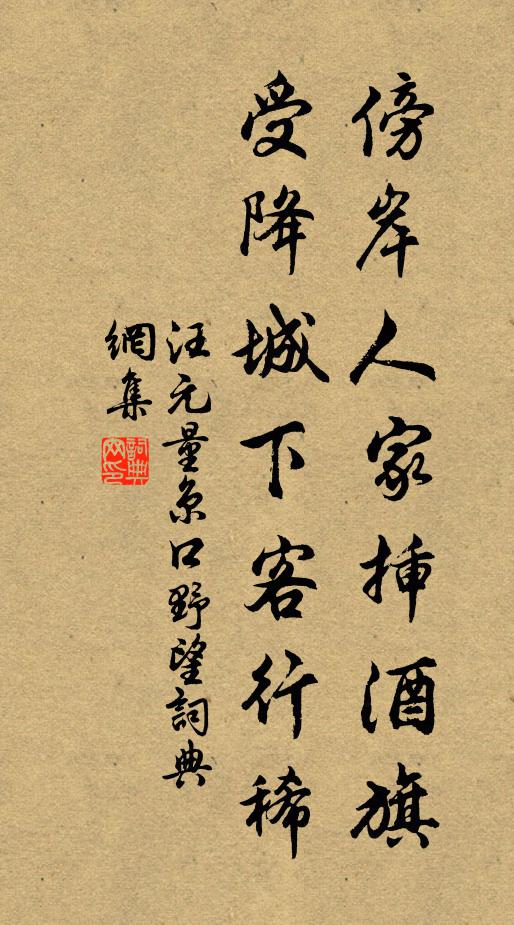 傍岸人家挿酒旗
受降城下客行稀
汪元量京口野望詞典
網集
詞典網印